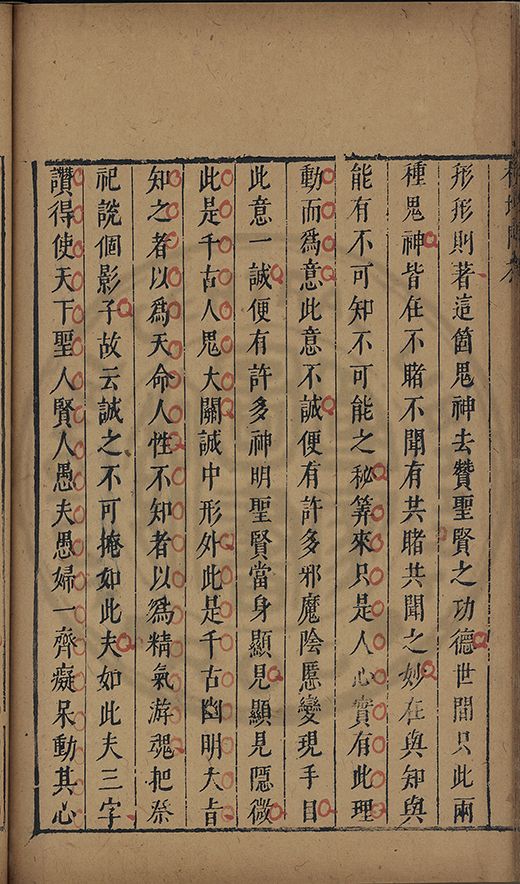 形形則著這箇鬼神去贊聖賢之功德世間只此兩
種鬼神皆在不睹不聞有共睹共聞之妙在與知與
能有不可知不可能之秘算來只是人心實有此理
動而爲意此意不誠便有許多邪魔陰慝變現手目
此意一誠便有許多神明聖賢當身顯見顯見隱微
此是千古人鬼大關誠中形外此是千古幽明大旨
知之者以爲天命人性不知者以爲精氣游魂把祭
祀說個影子故云誠之不可掩如此夫如此夫三字
讚得使天下聖人賢人愚夫愚婦一齊癡呆動其心